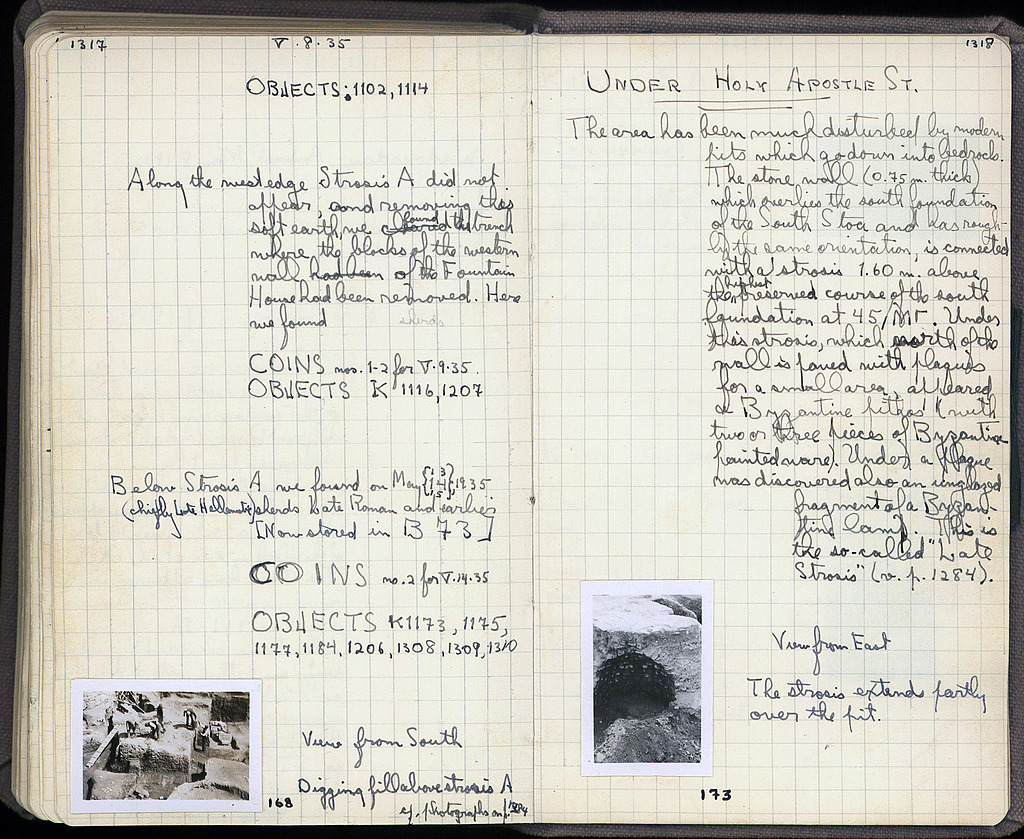 1317
V·8·35
OBJECTS; 1102, 1114
Along the west edge Strosis A did not
appear, and removing this
soft earth, we found the trench
where the blocks of the western
wall had been of the Fountain
House had been removed. Here
we found sherds
COINS nos. 1-2 for V·9·35.
OBJECTS K 1116, 1207
Below Strosis A we found on May {13 14 15} 1935
(chiefly Late Hellenistic) sherds Late Roman and earlier
[Now stored in B 73]
COINS no. 2 for V·14·35
OBJECTS K1173, 1175,
1177, 1184, 1206, 1308, 1309, 1310
View from South
Digging fill above strosis A
cf. photographs on p. 1284
168
1318
UNDER HOLY APOSTLE ST.
The area has been much disturbed by modern
pits which go down into bedrock.
The stone wall (0.75 m. thick)
which overlies the south foundation
of the South Stoa and has rough-
ly the same orientation, is connected
with a strosis 1.60 m. above
the highest preserved course of the south
foundation at 45/ΜΓ. Under
this strosis, which north of the
wall is paved with plaques
for a small area, appeared
a Byzantine pithos (with
two or three pieces of Byzantine
painted ware). Under a plaque
was discovered also an unglazed
fragment of a Byzan-
tine lamp. This is
the so-called "Late
Strosis" (v. p. 1284).
View from East
The strosis extends partly
over the pit.
173